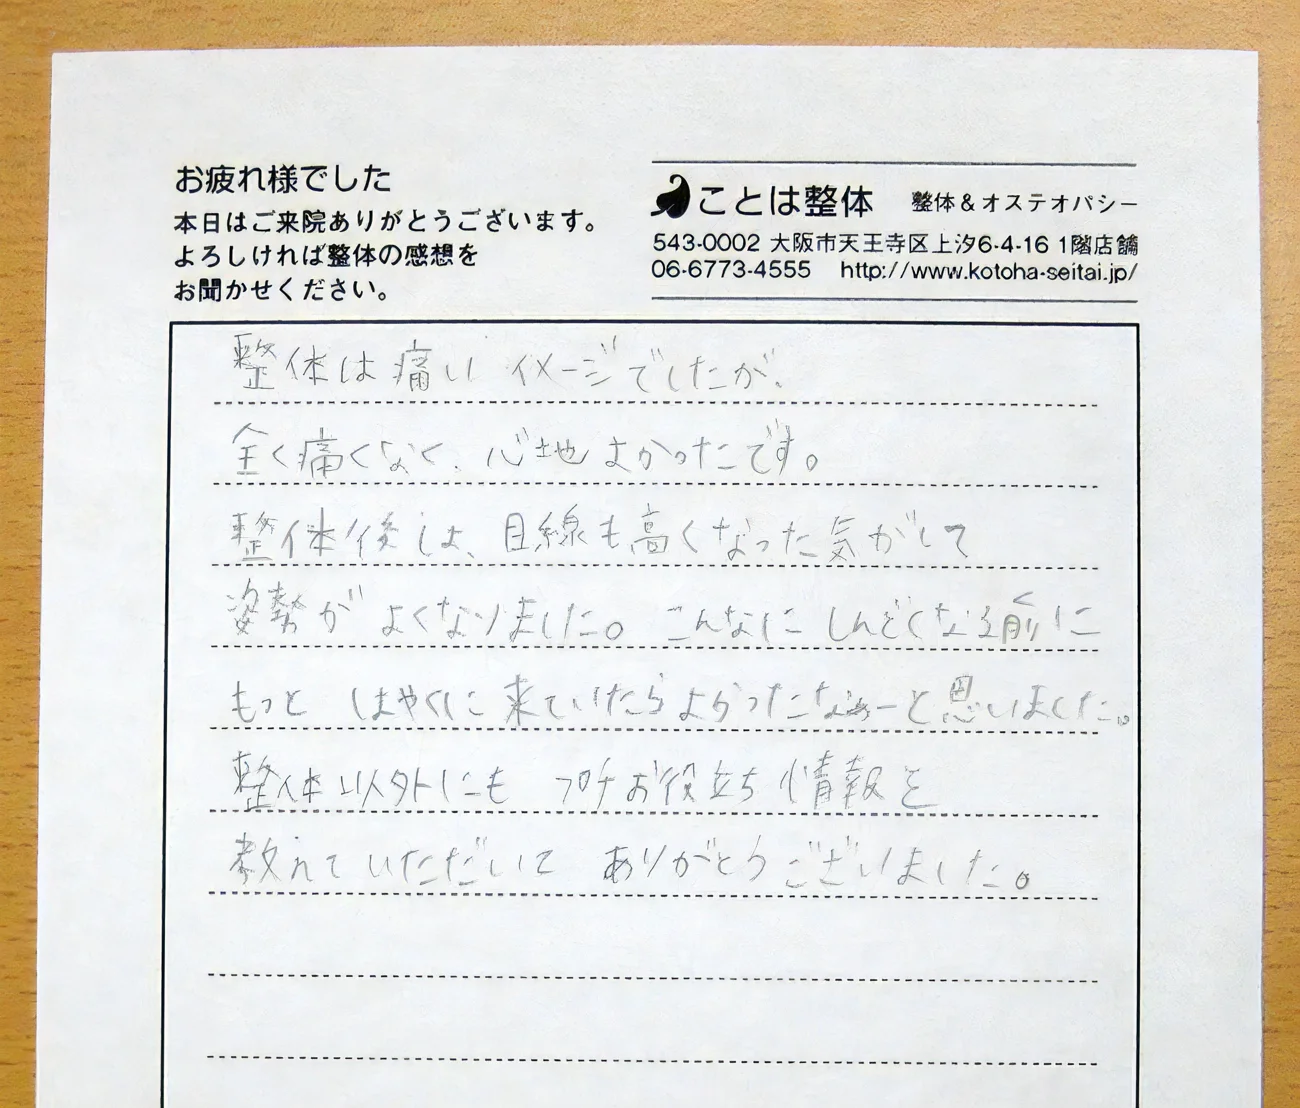 お疲れ様でした
本日はご来院ありがとうございます。
よろしければ整体の感想を
お聞かせください。
ことは整体 整体&オステオパシー
543-0002 大阪市天王寺区上汐6-4-16 1階店舗
06-6773-4555 http://www.kotoha-seitai.jp/
整体は痛い イメージでしたが、
全く痛くなく、心地よかったです。
整体後は、目線も高くなった気がして
姿勢が よくなりました。 こんなに しんどくなる前に
もっと はやくに 来ていたら よかったなぁーと思いました。
整体以外にも プチお役立ち 情報を
教えて いただいて ありがとうございました。